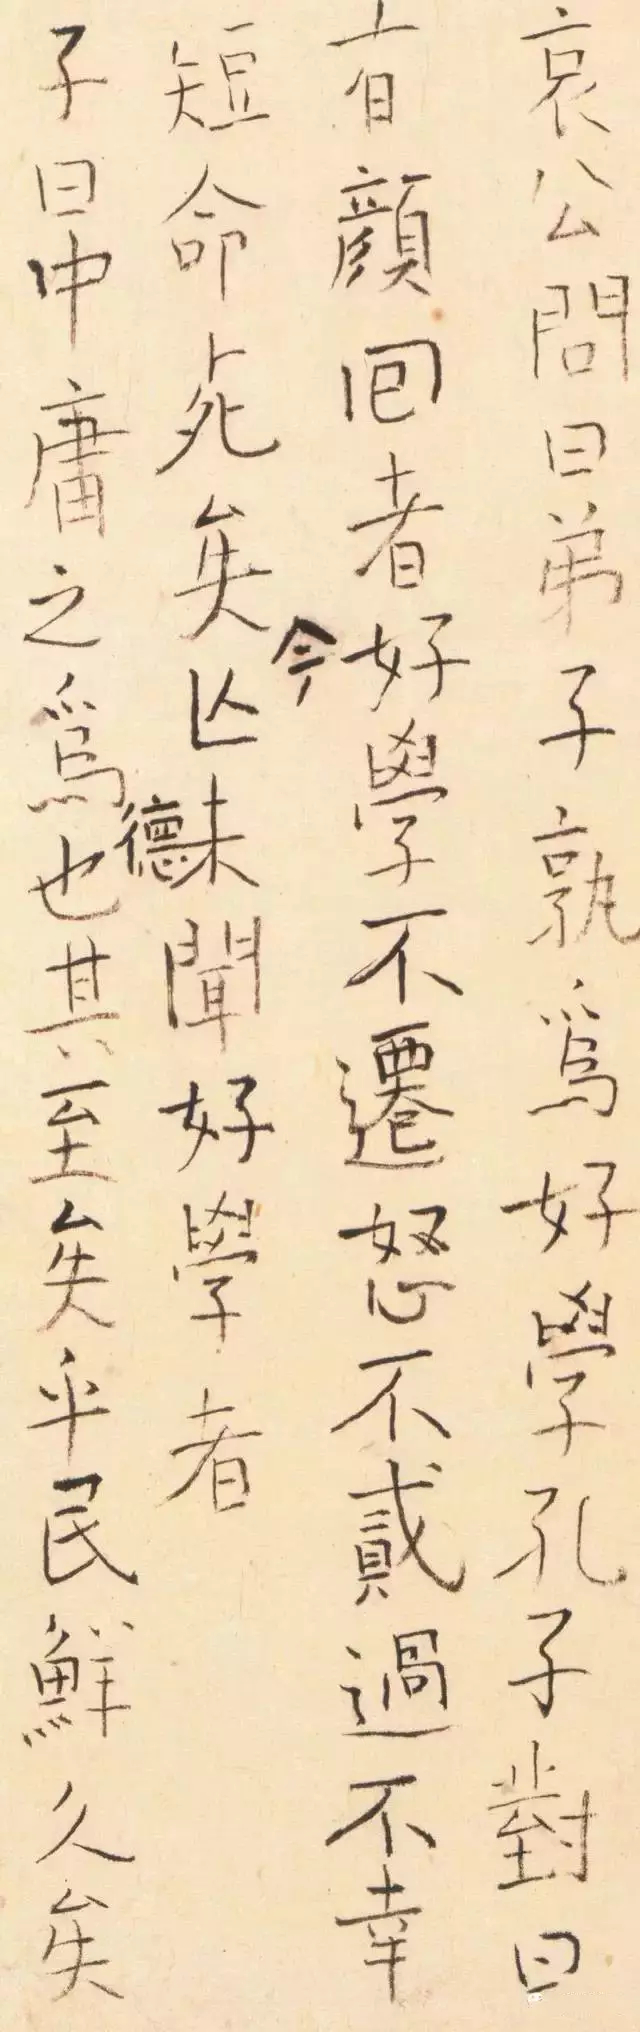 哀公問曰弟子孰爲好學孔子對曰
有顔囘者好學不遷怒不貳過不幸
短命死矣今亾未聞好學者
子曰中庸之爲德也其至矣乎民鮮久矣